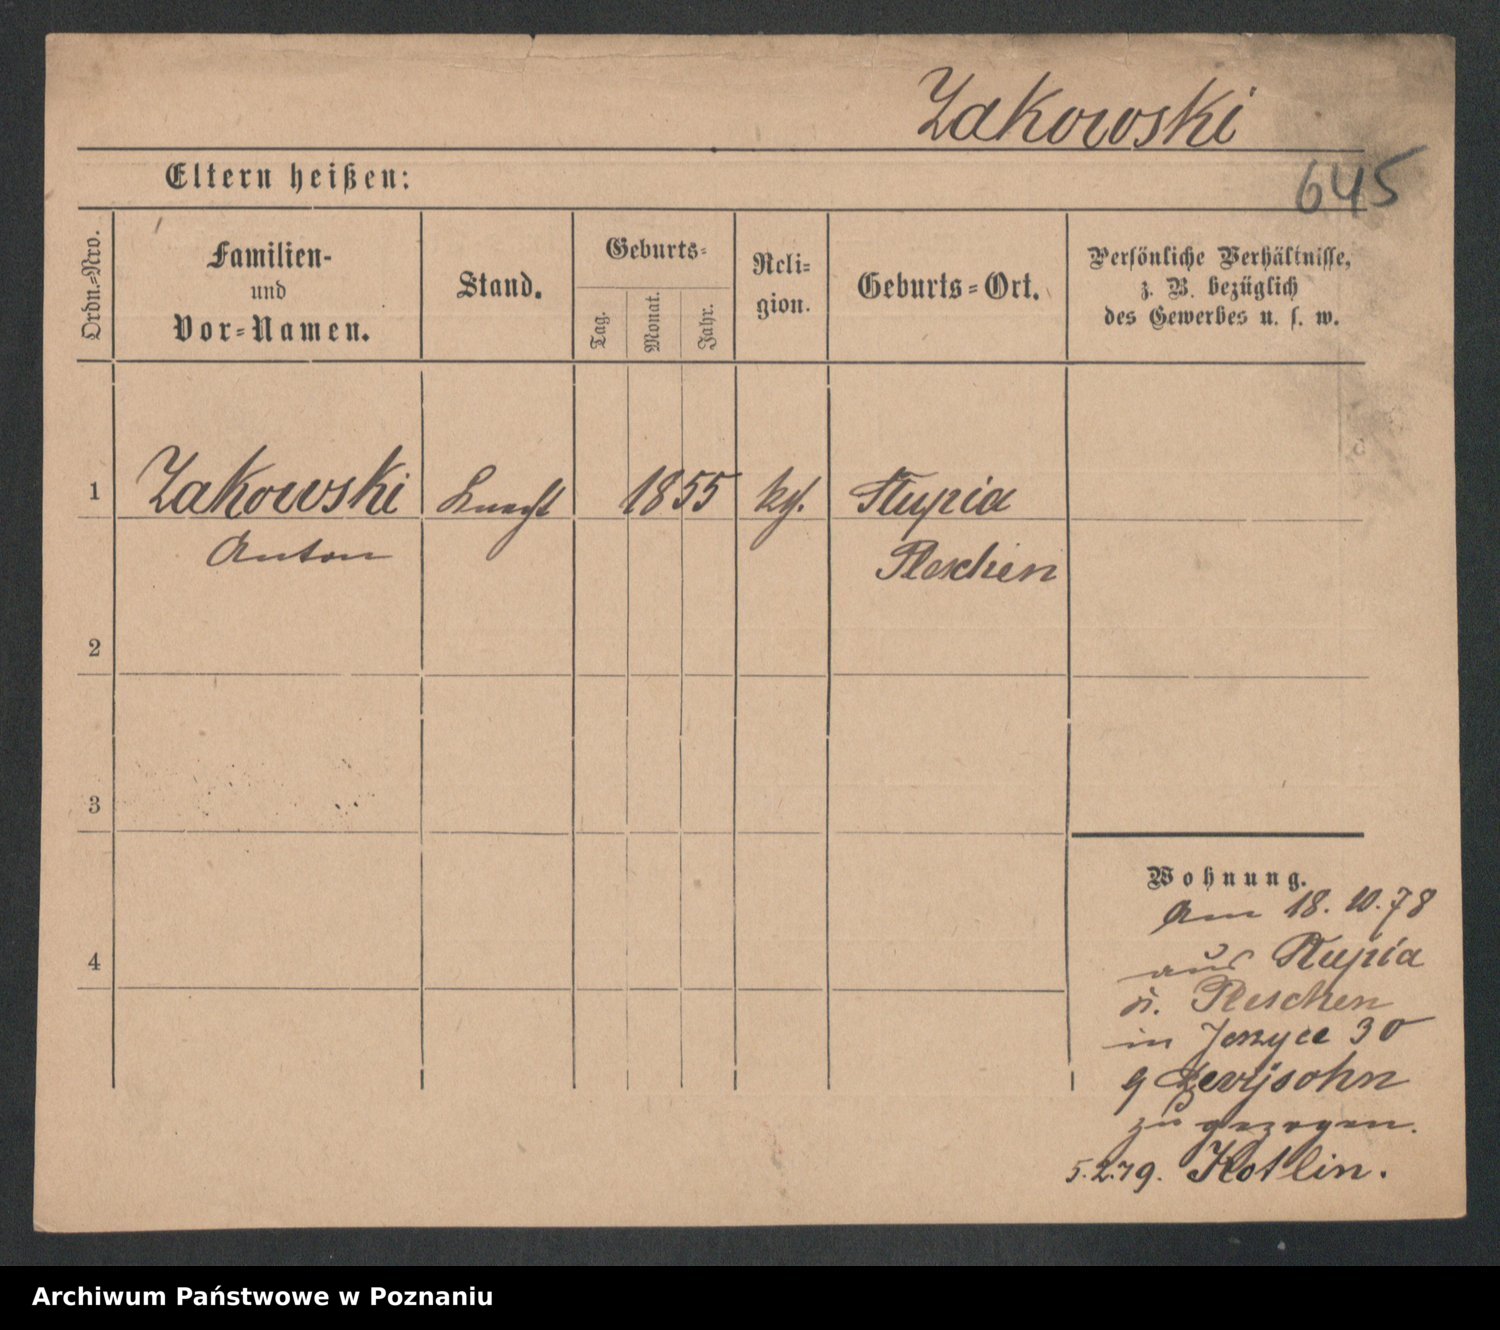 Zakowski
645
Eltern heißen:
Ordn.-Nro.
Familien-
und
Vor-Namen.
Stand.
Geburts-
Tag.
Monat.
Jahr.
Reli-
gion.
Geburts-Ort.
Persönliche Verhältnisse,
z. B. bezüglich
des Gewerbes u. s. w.
1 Zakowski Knecht 1855 kth. Slupia
Anton Pleschen
2
3
4
Wohnung.
Am 18. 10. 78
aus Slupia
Pleschen
in Jerzyce 30
Levysohn
zugezogen.
5.2.79. Kotlin.
Archiwum Państwowe w Poznaniu